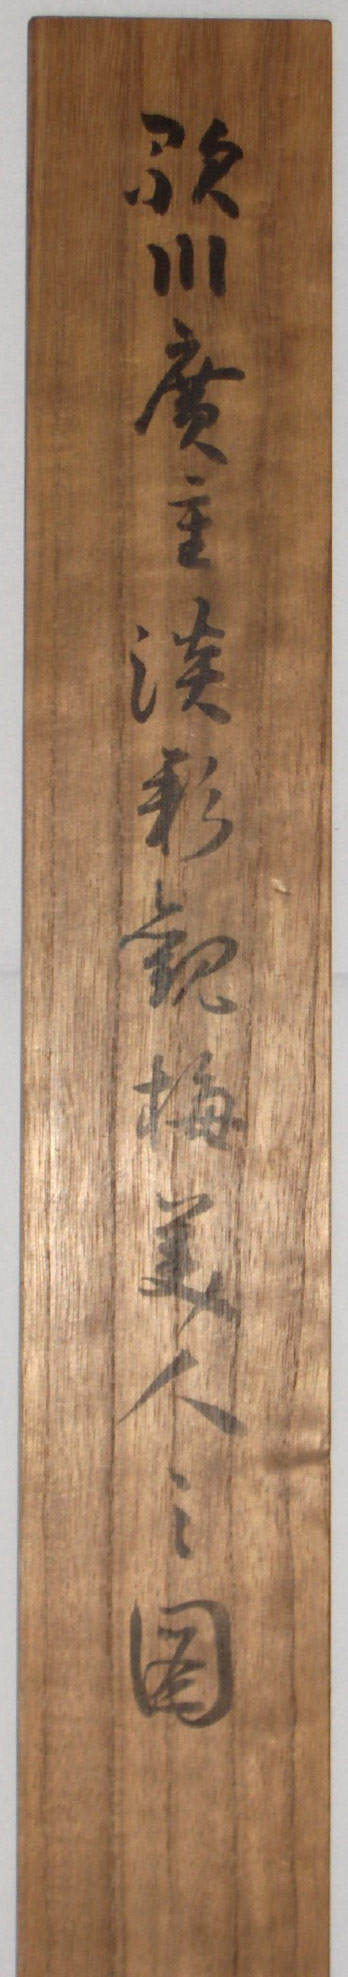 歌川廣重淡彩觀梅美人之圖